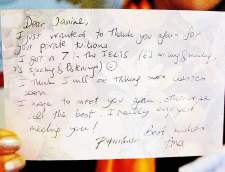 Dear Janine,
I just wanted to thank you again for
your private tuitions
I got a 7 in the IELTS (6,5 writing & reading,
7,5 speaking & listening) ☺
I think I will be taking more lessons
soon
I hope to meet you again, otherwise
all the best. I really enjoyed
meeting you!
Best wishes
Ana